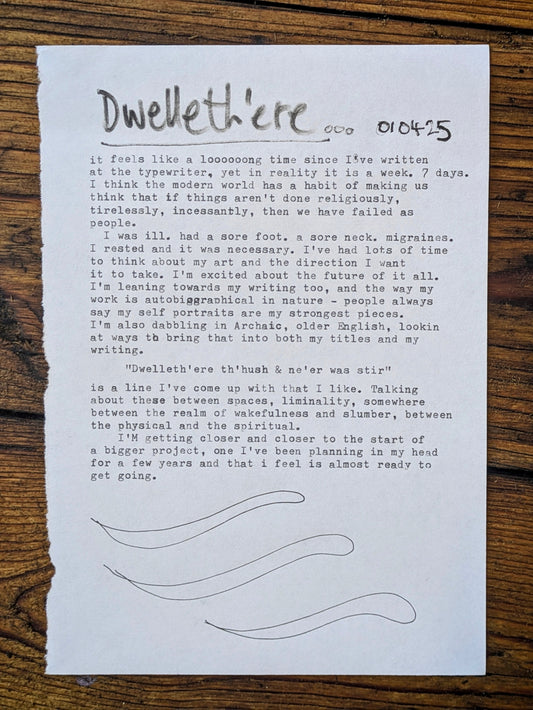 Dwelleth'ere... 010425
it feels like a loooooong time since I've written
at the typewriter, yet in reality it is a week. 7 days.
I think the modern world has a habit of making us
think that if things aren't done religiously,
tirelessly, incessantly, then we have failed as
people.
I was ill. had a sore foot. a sore neck. migraines.
I rested and it was necessary. I've had lots of time
to think about my art and the direction I want
it to take. I'm excited about the future of it all.
I'm leaning towards my writing too, and the way my
work is autobiographical in nature - people always
say my self portraits are my strongest pieces.
I'm also dabbling in Archaic, older English, lookin
at ways to bring that into both my titles and my
writing.
"Dwelleth'ere th'hush & ne'er was stir"
is a line I've come up with that I like. Talking
about these between spaces, liminality, somewhere
between the realm of wakefulness and slumber, between
the physical and the spiritual.
I'M getting closer and closer to the start of
a bigger project, one I've been planning in my head
for a few years and that i feel is almost ready to
get going.